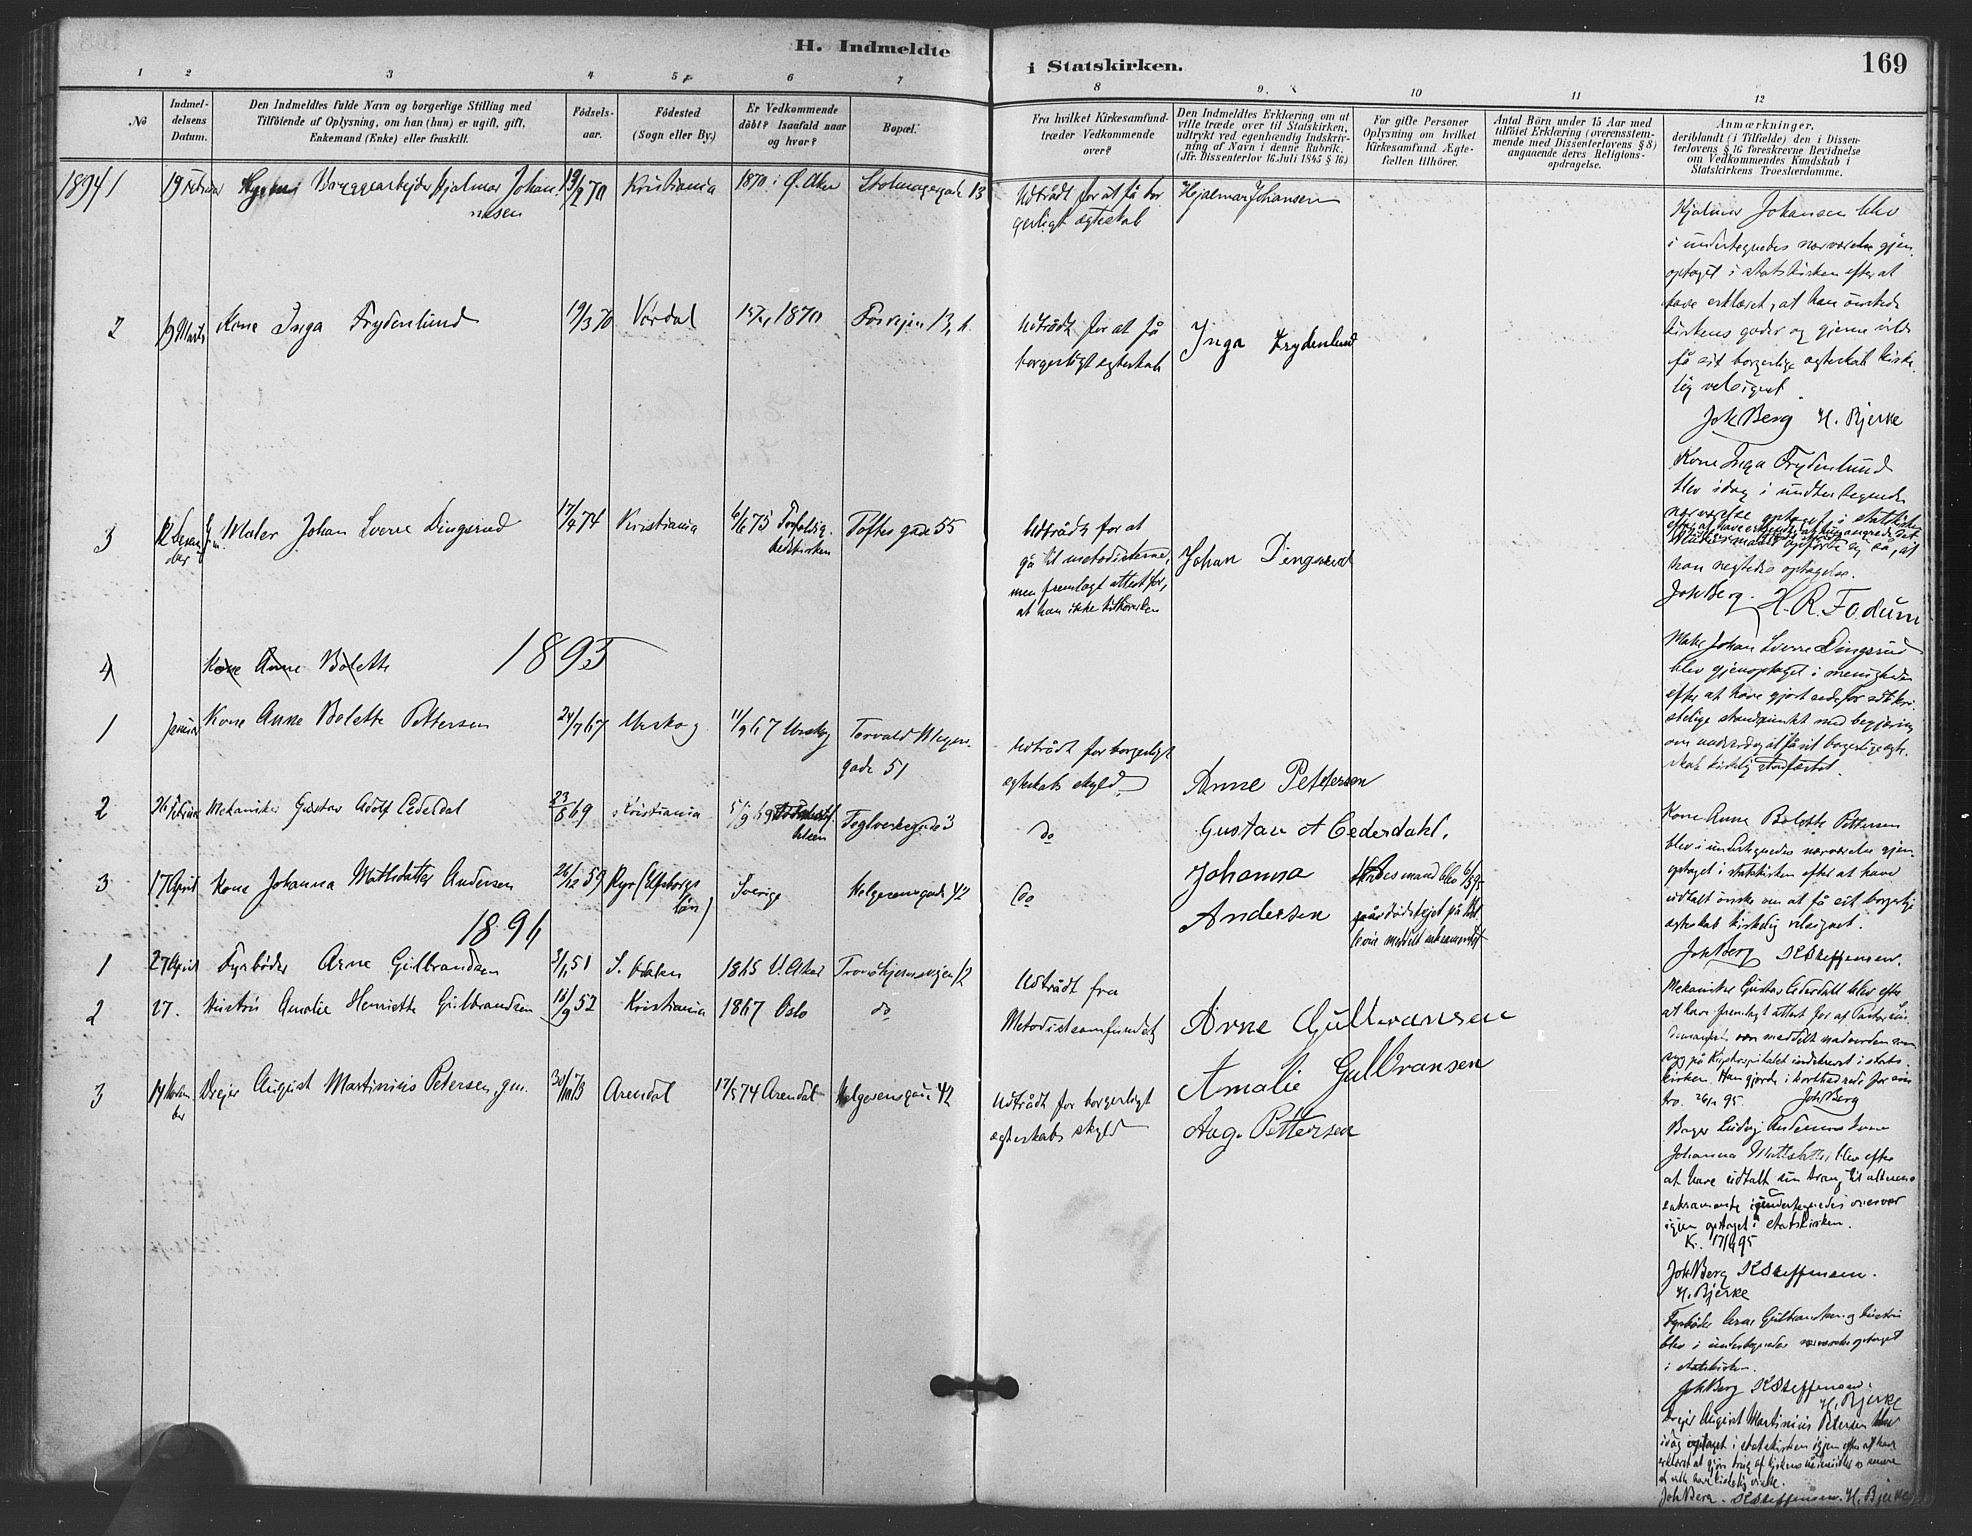 H. Indmeldte i Statskirken.
169
1 2 3 4 5 6 7 8 9 10 11 12
No
Indmel-
delsens
Datum.
Den Indmeldtes fulde Navn og borgerlige Stilling med
Tilföiende af Oplysning, om han (hun) er ugift, gift,
Enkemand (Enke) eller fraskilt.
Födsels-
aar.
Födested
(Sogn eller By.)
Er Vedkommende
döbt? Isaafald naar
og hvor?
Bopæl.
Fra hvilket Kirkesamfund-
træder Vedkommende
over?
Den Indmeldtes Erklæring om at
ville træde over til Statskirken,
udtrykt ved egenhændig Indskriv-
ning af Navn i denne Rubrik.
(Jfr. Dissenterlov 16 Juli 1845 § 16)
For gifte Personer
Oplysning om hvilket
Kirkesamfund Ægte-
fællen tilhører.
Antal Börn under 15 Aar med
tilföiet Erklæring (overensstem-
mende med Dissenterlovens § 8)
angaaende deres Religions-
opdragelse.
Anmærkninger,
deriblandt (i Tilfælde) den i Dissen-
terlovens § 16 foreskrevne Bevidnelse
om Vedkommendes Kundskab i
Statskirkens Troeslærdomme.
1894 1 19 Februar Bryggearbejder Hjalmar Johan-
nesen
70 Kristiania 1870 i Ø. Aker Stolmagergade 13
Udtrådt for at få bor
gerligt ægteskab
Hjalmar Johansen
Hjalmar Johansen blev
i undertegnedes nærværelse gjen
optaget i statskirken efter at
have erklæret, at han ønskede
kirkens goder og gjerne vilde
få sit borgerlige ægteskab kirke
lig velsignet.
Joh Berg H. Bjerke
2 Marts Kone Inga Frydenlund 19/3 70 Vardal 1870 Fosvejen 13,
Udtrådt for at få
borgerligt ægteskab
Inga Frydenlund
Kone Inga Frydenlund
blev idag i undertegnedes
nærværelse optaget i statskirken
han negtedes optagelse.
Joh Berg. H. R. Fodum
3 Maler Johan Sverre Dingsrud 74 Kristiania 6/6 75 Trefoldig-
hedskirken
Toftes gade 55
Udtrådt for at
gå til metodisterne,
men fremlagt attest for,
at han ikke tilhører den
Johan Dingsrud
Maler Johan Sverre Dingsrud
blev gjenoptaget i menigheden
efter at have gjort rede for sit kri-
stelige standpunkt med begjæring
om
skab kirkelig stadfæstet.
4 Kone Anne Bolette
1895
1 Januar Kone Anne Bolette Pettersen 24/7 67 Urskog 11/9 67 Urskog Torvald Meyers
gade 51
Udtrådt for borgerligt
ægteskabs skyld
Anne Pettersen
Kone Anne Bolette Pettersen
blev i undertegnedes nærværelse gjen
optaget i statskirken efter at have
udtalt ønske om at få sit borgerlige
ægteskab kirkelig velsignet.
Joh Berg K Steffensen.
2 26 Februar Mekaniker Gustav Adolf Cederdal 23/8 69 Kristiania 5/9 69 Teglverksgade 3
do
Gustav A Cederdahl.
Mekaniker Gustav Cederdahl blev efter
at have fremlagt attest
syg på Rigshospitalet indskrevet i stats
kirken. Han gjorde i korthed rede for sin
tro. 95 Joh Berg
3 17 April Kone Johanna Mattsdatter Andersen 26/12 59 Ryr (Elfsborgs
län)
Sverige Helgesensgade 42
do
Johanna
Andersen
Hendes mand blev 6/3 95
på dødslejet
meddelt sakramentet
Bager Ludvig Andersens kone
Johanna Mattsdatter blev efter
at have udtalt sin trang til alterens
sakramente i undertegnedes nærvær
igjen optaget i statskirken.
K. 17/4 95
Joh Berg K Steffensen.
H. Bjerke
1896
1 27 April Fyrbøder Arne Gulbrandsen 51 S. Odalen 1865 V. Aker Trondhjemsvejen 12
Udtrådt fra
Metodistsamfundet
Arne Gulbransen
2 27. Hustru Amalie Henriette Gulbrandsen 18/9 52 Kristiania 1867 Oslo do
Amalie Gulbransen
Fyrbøder Arne Gulbrandsen og hustru
blev i undertegnedes nærværelse optaget
i statskirken.
Joh Berg K Steffensen.
H. Bjerke
3 14 Novem-
ber
Drejer August Martinius Petersen, gm. 73 Arendal 17/5 74 Arendal Helgesensgade 42
Udtrådt for borgerligt
ægteskabs skyld
Aug. Pettersen
Drejer August Martinius Petersen blev
idag optaget i statskirken igjen efter at have
erklæret at gjøre brug af kirkens nådemidler
Joh Berg. K Steffensen. H. Bjerke